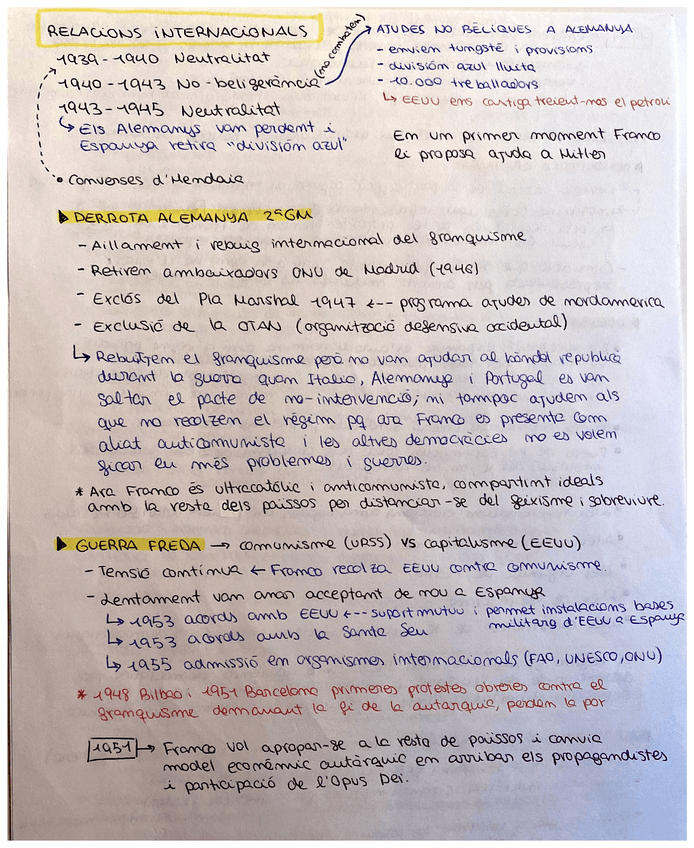 RELACIONS INTERNACIONALS
1939-1940 Neutralitat
1940-1943 No-beligerància (no combaten)
1943-1945 Neutralitat
↳ Els Alemanys van perdent i
Espanya retira "división azul"
• Converses d'Hendaia
→ AJUDES NO BÈLIQUES A ALEMANYA
- envien tungstè i provisions
- división azul lluita
- 10.000 treballadors
↳ EEUU ens castiga treient-nos el petroli
En un primer moment Franco
li proposa ajuda a Hitler
▶ DERROTA ALEMANYA 2ªGM
- Aillament i rebuig internacional del franquisme
- Retiren ambaixadors ONU de Madrid (1946)
- Exclós del Pla Marshal 1947 ←-- programa ajudes de nordamerica
- Exclusió de la OTAN (organització defensiva occidental)
↳ Rebutgen el franquisme però no van ajudar al bàndol republicà
durant la guerra quan Italia, Alemanya i Portugal es van
saltar el pacte de no-intervenció; ni tampoc ajuden als
que no recolzen el règim pq ara Franco es presenta com
aliat anticomunista i les altres democràcies no es volem
ficar en més problemes i guerres.
* Ara Franco és ultracatólic i anticomunista, compartint ideals
amb la resta dels països per distanciar-se del feixisme i sobreviure.
▶ GUERRA FREDA → comunisme (URSS) VS capitalisme (EEUU)
- Tensió contínua ← Franco recolza EEUU contra comunisme.
- Lentament van anar acceptant de nou a Espanya
↳ 1953 acords amb EEUU ←-- suport mutuu i permet instalacions bases
militars d'EEUU a Espanya
↳ 1953 acords amb la Santa Seu
↳ 1955 admissió en organismes internacionals (FAO, UNESCO, ONU)
* 1948 Bilbao i 1951 Barcelona primeres protestes obreres contra el
franquisme demanant la fi de la autarquia, perden la por
1951 → Franco vol apropar-se a la resta de països i canvia
model econòmic autàrquic en arribar els propagandistes
i participació de l'Opus Dei.